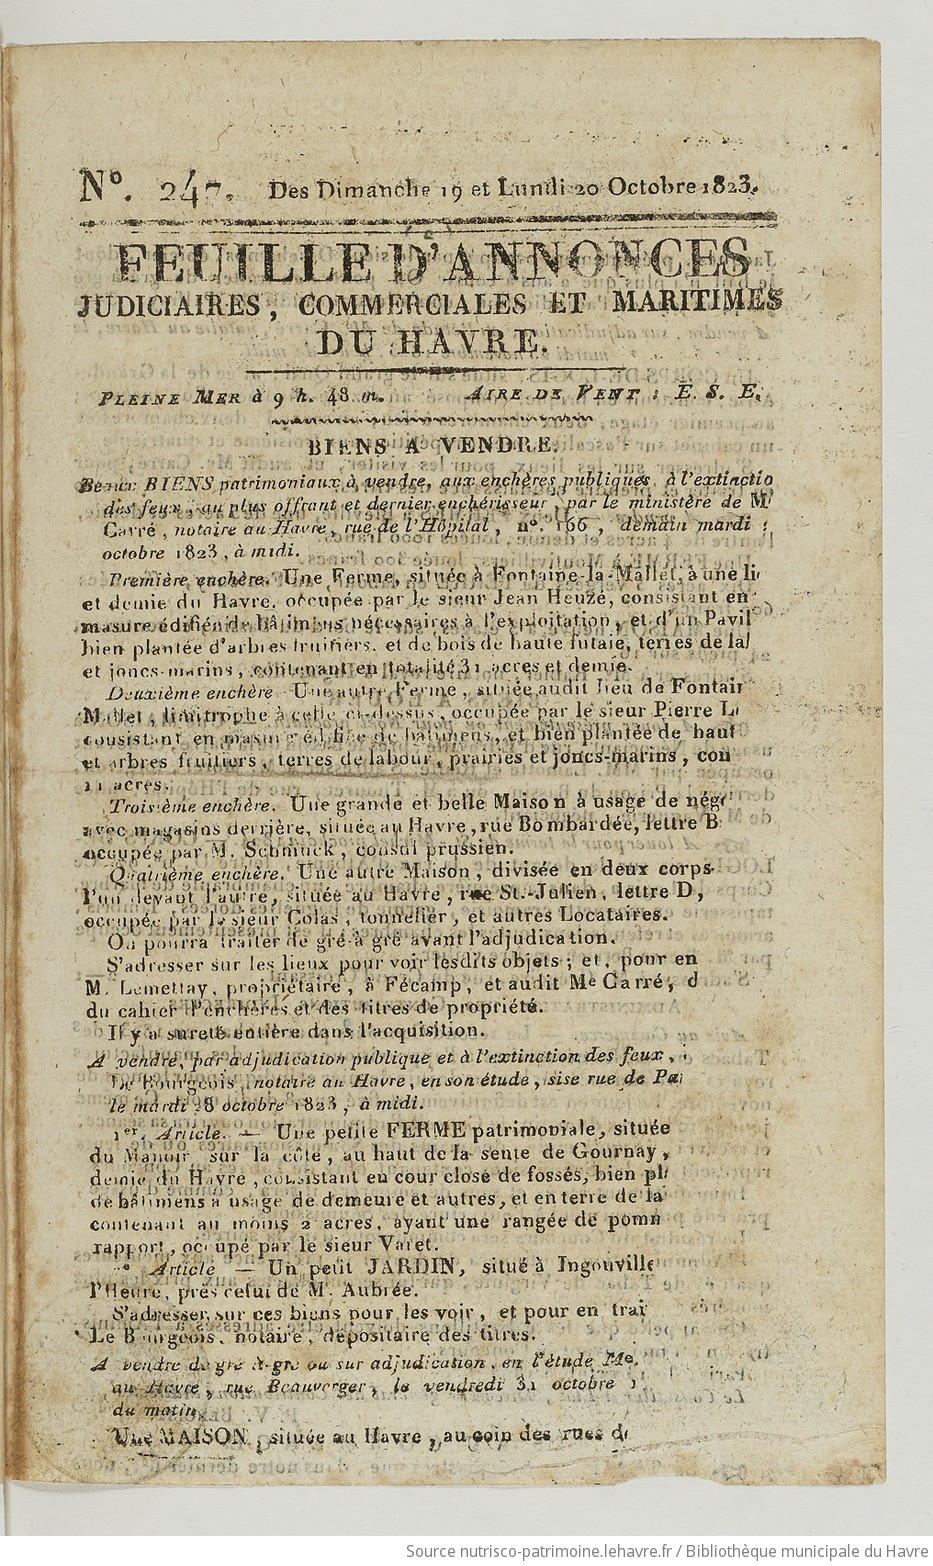 Nº. 247. Des Dimanche 19 et Lundi 20 Octobre 1823.
FEUILLE D'ANNONCES
JUDICIAIRES, COMMERCIALES ET MARITIMES
DU HAVRE.
PLEINE MER à 9 h. 48 m. AIRE DE VENT : E. S. E.
BIENS A VENDRE.
Beaux BIENS patrimoniaux à vendre, aux enchères publiques, à l'extinctio
des feux, au plus offrant et dernier enchérisseur, par le ministère de M
Carré, notaire au Havre, rue de l'Hôpital, nº. 166, demain mardi
octobre 1823, à midi.
Première enchère. Une Ferme, située à Fontaine-la-Mallet, à une li
et demie du Havre, occupée par le sieur Jean Heuzé, consistant en
masure édifiée de bâtimens nécessaires à l'exploitation, et d'un Pavil
bien plantée d'arbres fruitiers, et de bois de haute futaie, terres de lal
et joncs-marins, contenant en totalité 31 acres et demie.
Deuxième enchère. Une autre Ferme, située audit lieu de Fontair
Mallet, limitrophe à celle ci-dessus, occupée par le sieur Pierre L
consistant en masure édifiée de bâtimens, et bien plantée de haut
et arbres fruitiers, terres de labour, prairies et joncs-marins, con
11 acres.
Troisième enchère. Une grande et belle Maison à usage de nég
avec magasins derrière, située au Havre, rue Bombardée, lettre B
occupée par M. Schmuck, consul prussien.
Quatrième enchère. Une autre Maison, divisée en deux corps
l'un devant l'autre, située au Havre, rue St.-Julien, lettre D,
occupée par le sieur Colas, tonnelier, et autres Locataires.
On pourra traiter de gré à gré avant l'adjudication.
S'adresser sur les lieux pour voir lesdits objets ; et, pour en
M. Lemettay, propriétaire, à Fécamp, et audit Me Carré, d
du cahier d'enchères et des titres de propriété.
Il y a sureté entière dans l'acquisition.
A vendre, par adjudication publique et à l'extinction des feux,
Le Bourgeois, notaire au Havre, en son étude, sise rue de Pa
le mardi 28 octobre 1823, à midi.
1er. Article. — Une petite FERME patrimoniale, située
du Manoir sur la côte, au haut de la sente de Gournay,
demie du Havre, consistant en cour close de fossés, bien pl
de bâtimens à usage de demeure et autres, et en terre de la
contenant au moins 2 acres, ayant une rangée de pomn
rapport, occupé par le sieur Varet.
Article — Un petit JARDIN, situé à Ingouville
l'Heure, près celui de M. Aubrée.
S'adresser sur ces biens pour les voir, et pour en trai
Le Bourgeois, notaire, dépositaire des titres.
A vendre de gré à gré ou sur adjudication, en l'étude Me.
au Havre, rue Beauverger, le vendredi 31 octobre 1
du matin,
Une MAISON, située au Havre, au coin des rues d
Source nutrisco-patrimoine.lehavre.fr / Bibliothèque municipale du Havre